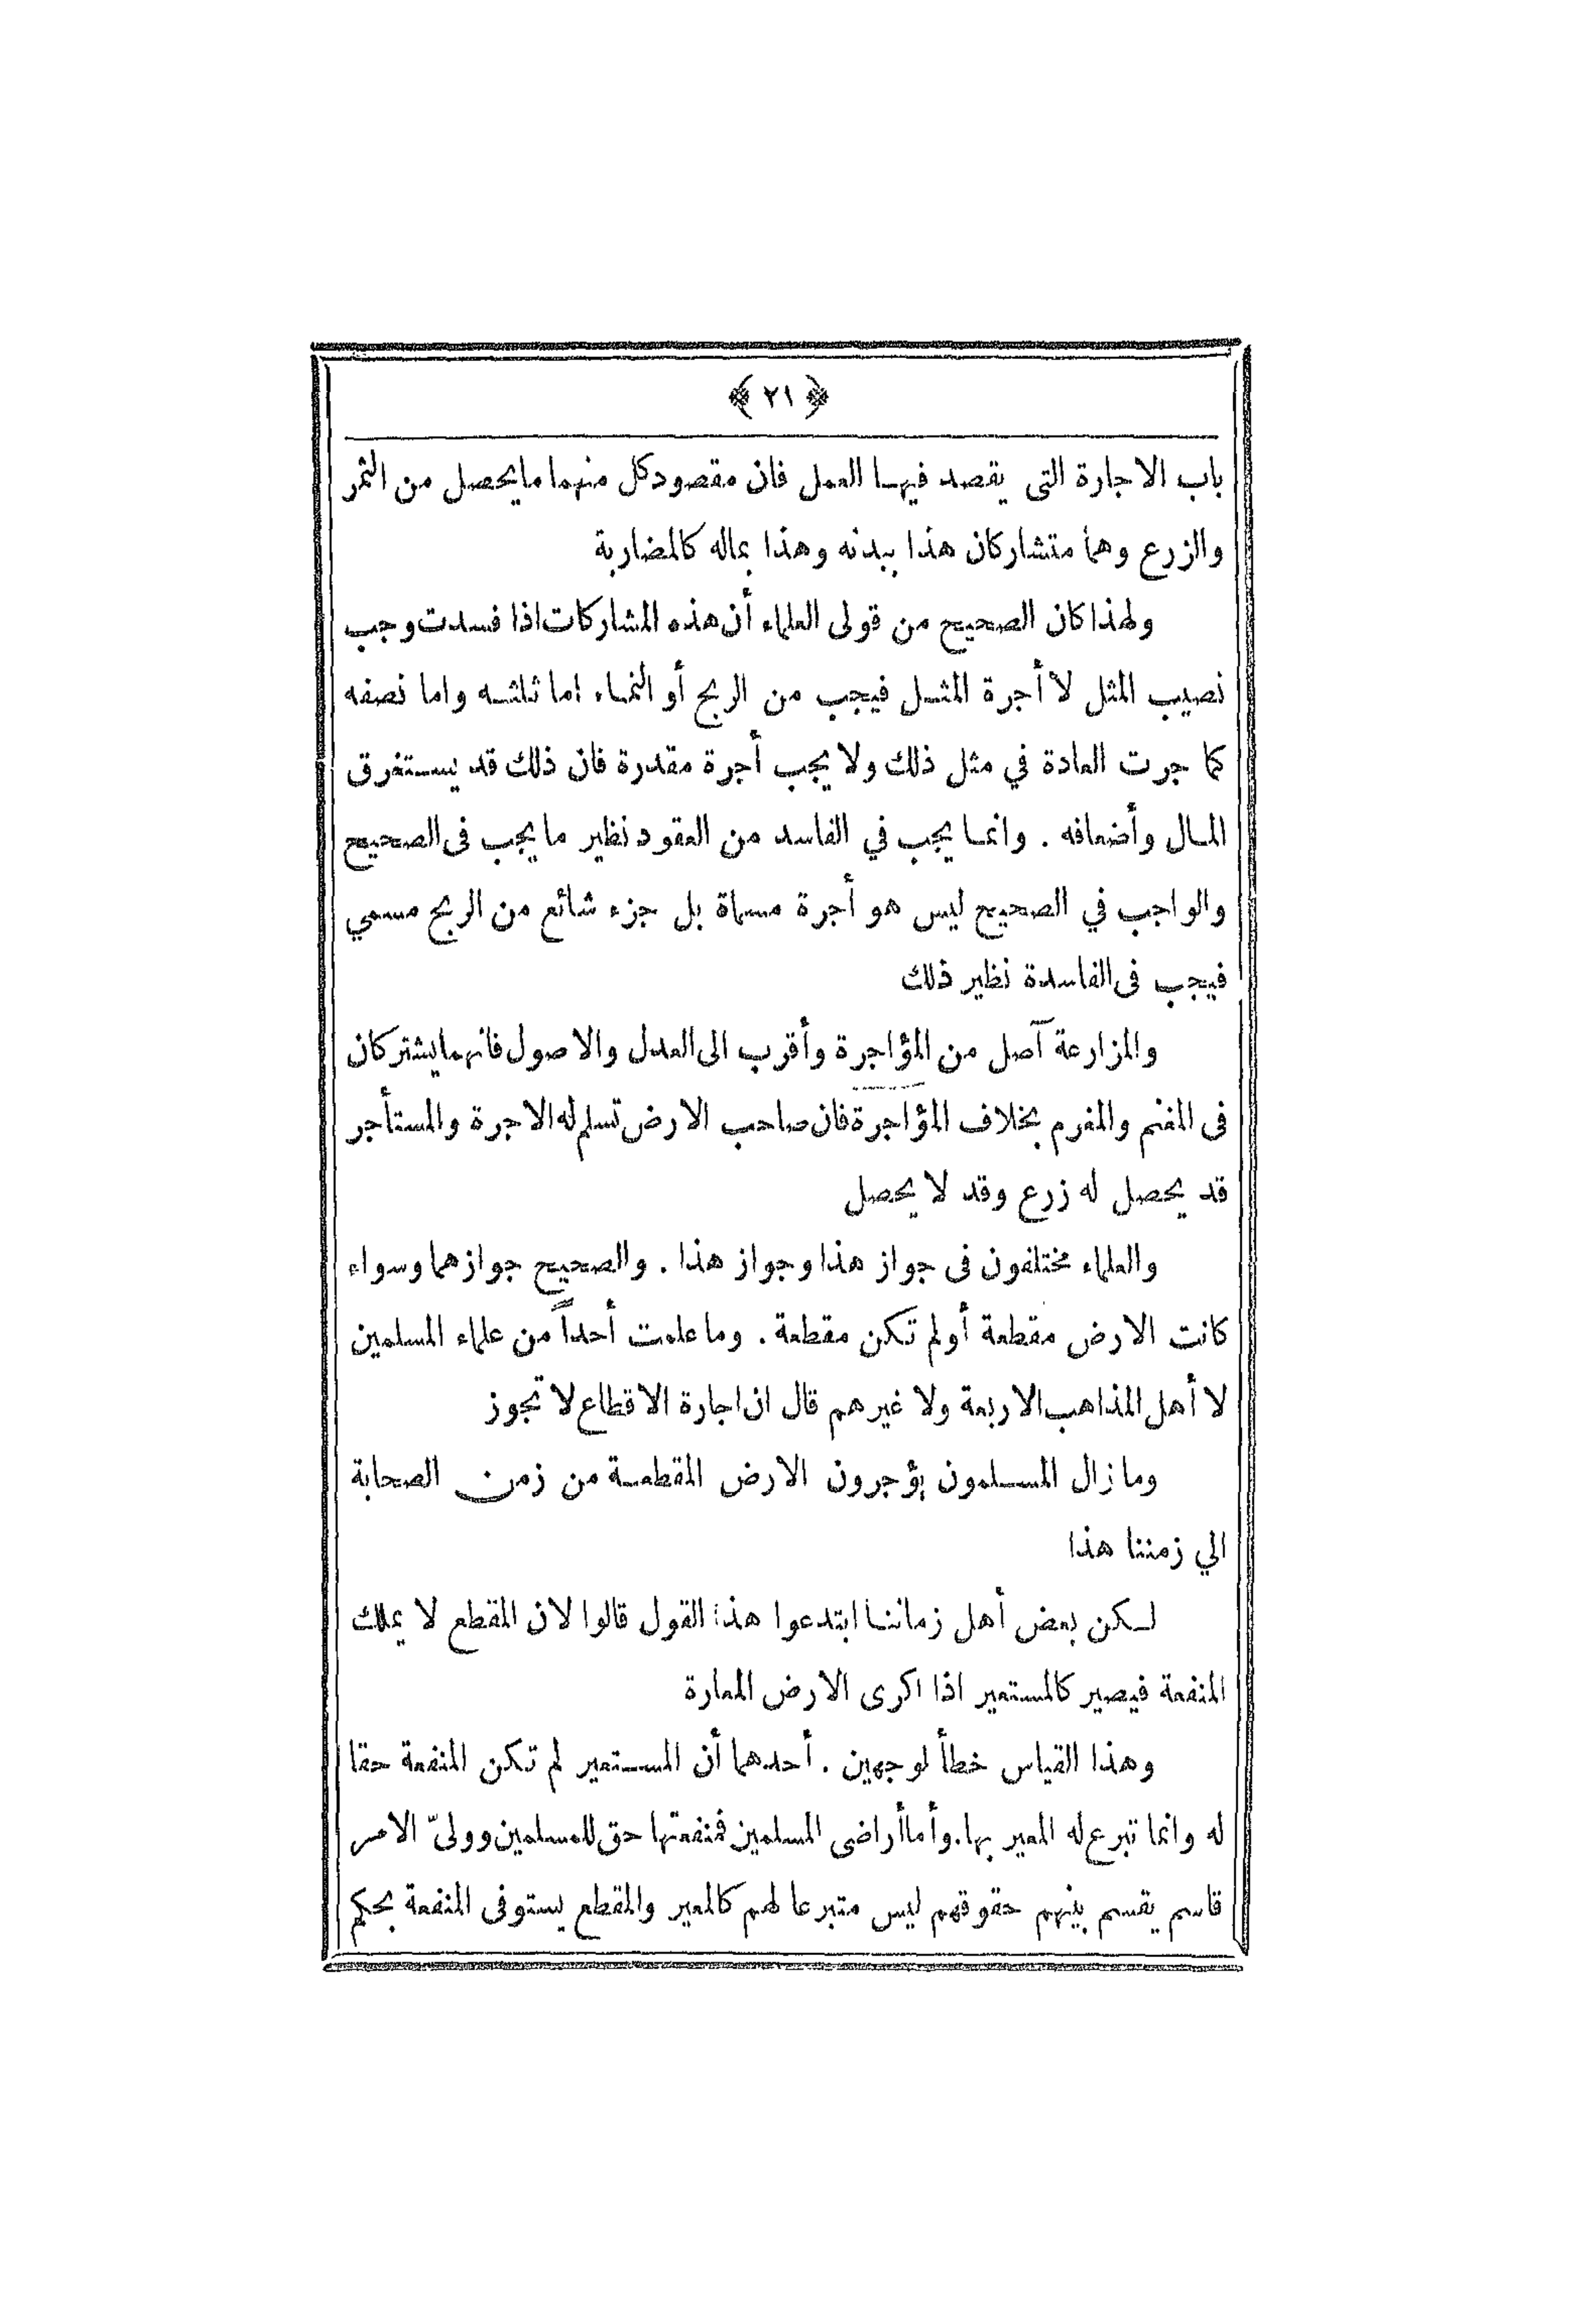 ﴿ ٢١ ﴾
باب الاجارة التى يقصد فيها العمل فان مقصود كل منهما ما يحصل من الثمر
والزرع وهما متشاركان هذا ببدنه وهذا بماله كالمضاربة
ولهذا كان الصحيح من قولى العلماء أن هذه المشاركات اذا فسدت وجب
نصيب المثل لا أجرة المثل فيجب من الربح أو النماء اما ثلثه واما نصفه
كما جرت العادة في مثل ذلك ولا يجب أجرة مقدرة فان ذلك قد يستغرق
المال وأضعافه . وانما يجب في الفاسد من العقود نظير ما يجب فى الصحيح
والواجب في الصحيح ليس هو أجرة مسماة بل جزء شائع من الربح مسمي
فيجب فى الفاسدة نظير ذلك
والمزارعة آصل من المؤاجرة وأقرب الى العدل والاصول فانهما يشتركان
فى المغنم والمغرم بخلاف المؤاجرة فان صاحب الارض تسلم له الاجرة والمستأجر
قد يحصل له زرع وقد لا يحصل
والعلماء مختلفون فى جواز هذا وجواز هذا . والصحيح جوازهما وسواء
كانت الارض مقطعة أو لم تكن مقطعة . وما علمت أحداً من علماء المسلمين
لا أهل المذاهب الاربعة ولا غيرهم قال ان اجارة الاقطاع لا تجوز
وما زال المسلمون يؤجرون الارض المقطعة من زمن الصحابة
الي زمننا هذا
لكن بعض أهل زماننا ابتدعوا هذا القول قالوا لان المقطع لا يملك
المنفعة فيصير كالمستعير اذا اكرى الارض المعارة
وهذا القياس خطأ لوجهين . أحدهما أن المستعير لم تكن المنفعة حقا
له وانما تبرع له المعير بها. وأما أراضى المسلمين فمنفعتها حق للمسلمين وولىّ الامر
قاسم يقسم بينهم حقوقهم ليس متبرعا لهم كالمعير والمقطع يستوفى المنفعة بحكم